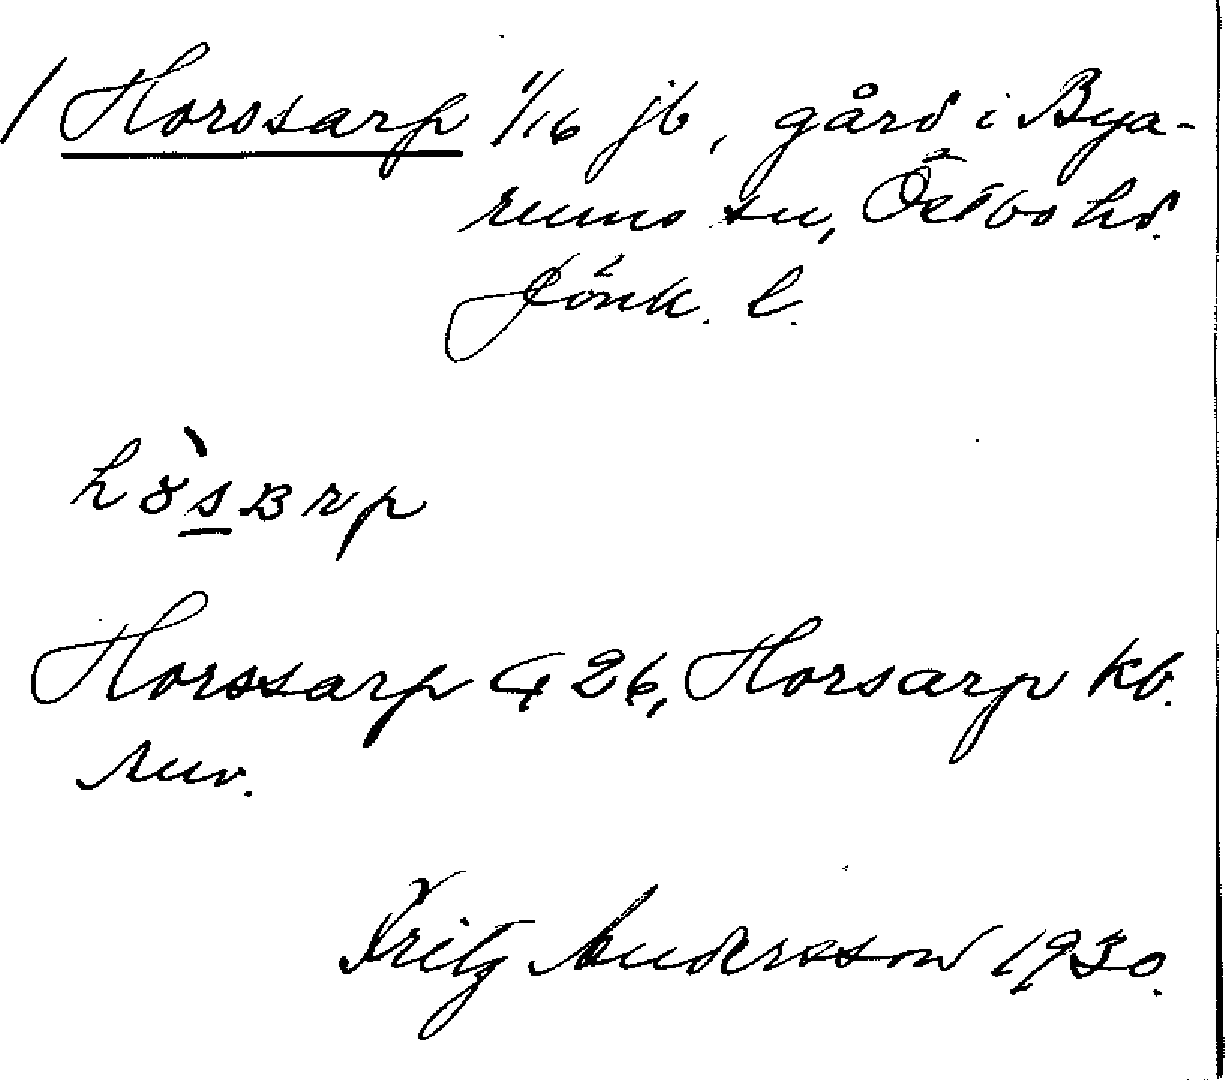 / Horssarp 1/16 jb, gård i Bya-
rums sn, Östbo hd.
Jönk. l.
Horssarp G 26, Horsarp kb.
Fritz Andersson 1930.